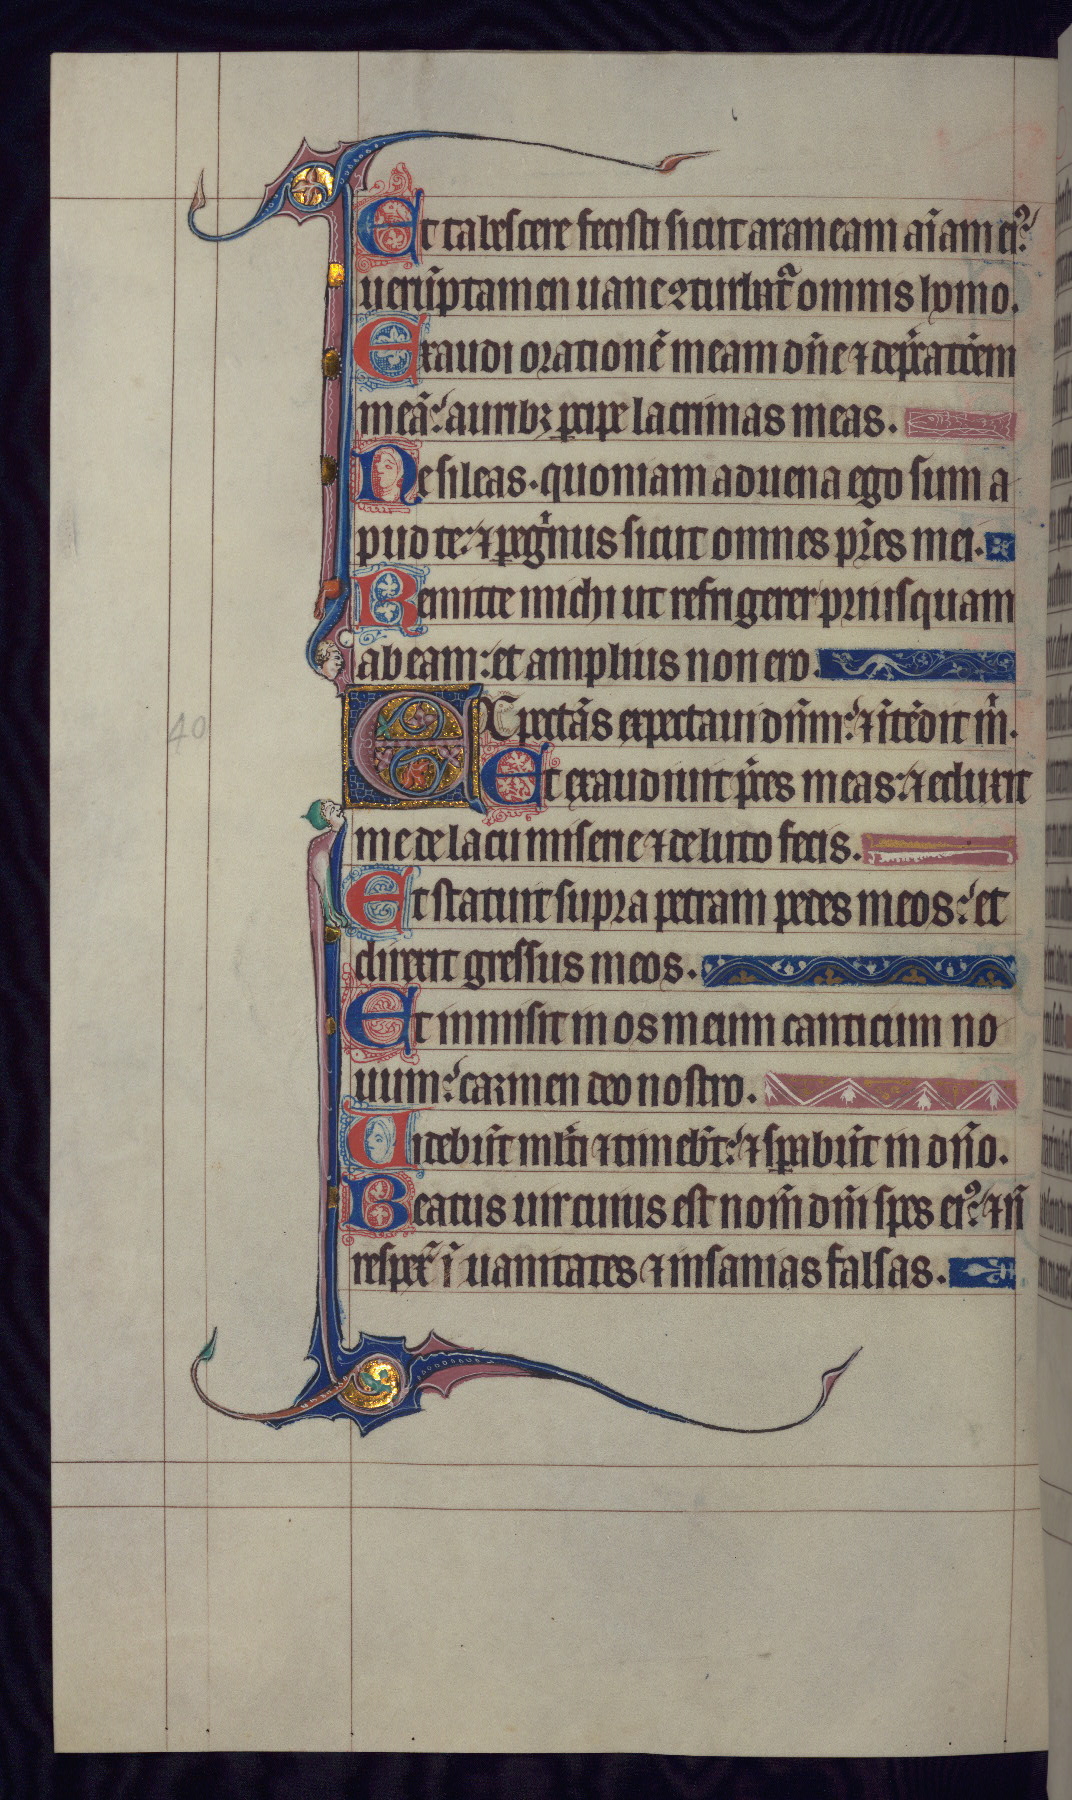 Et tabescere fecisti sicut araneam aīam ei⁹:
uerūptamen uane ꝯturbat᷑ omnis homo.
Exaudi orationē meam dn̄e ⁊ dep̄catōem
meā: aurib⁊ ꝑcipe lacrimas meas.
Ne sileas. quoniam aduena ego sum a
pud te: ⁊ ꝑegͥnus sicut omnes pr̄es mei.
Remitte michi ut refrigerer priusquam
abeam: et amplius non ero.
EXpectās expectaui dn̄m: ⁊ ītēdit mͥ.
Et exaudiuit p̄ces meas: ⁊ eduxit
me de lacu miserie ⁊ de luto fecis.
Et statuit supra petram pedes meos: et
direxit gressus meos.
Et inmisit in os meum canticum no
uum: carmen deo nostro.
Uidebūt ml̄ti ⁊ timebt̄: ⁊ sꝑabūt in dn̄o.
Beatus uir cuius est nom̄ dn̄i spes ei⁹: ⁊ n̄
respex̄ ī uanitates ⁊ insanias falsas.
40